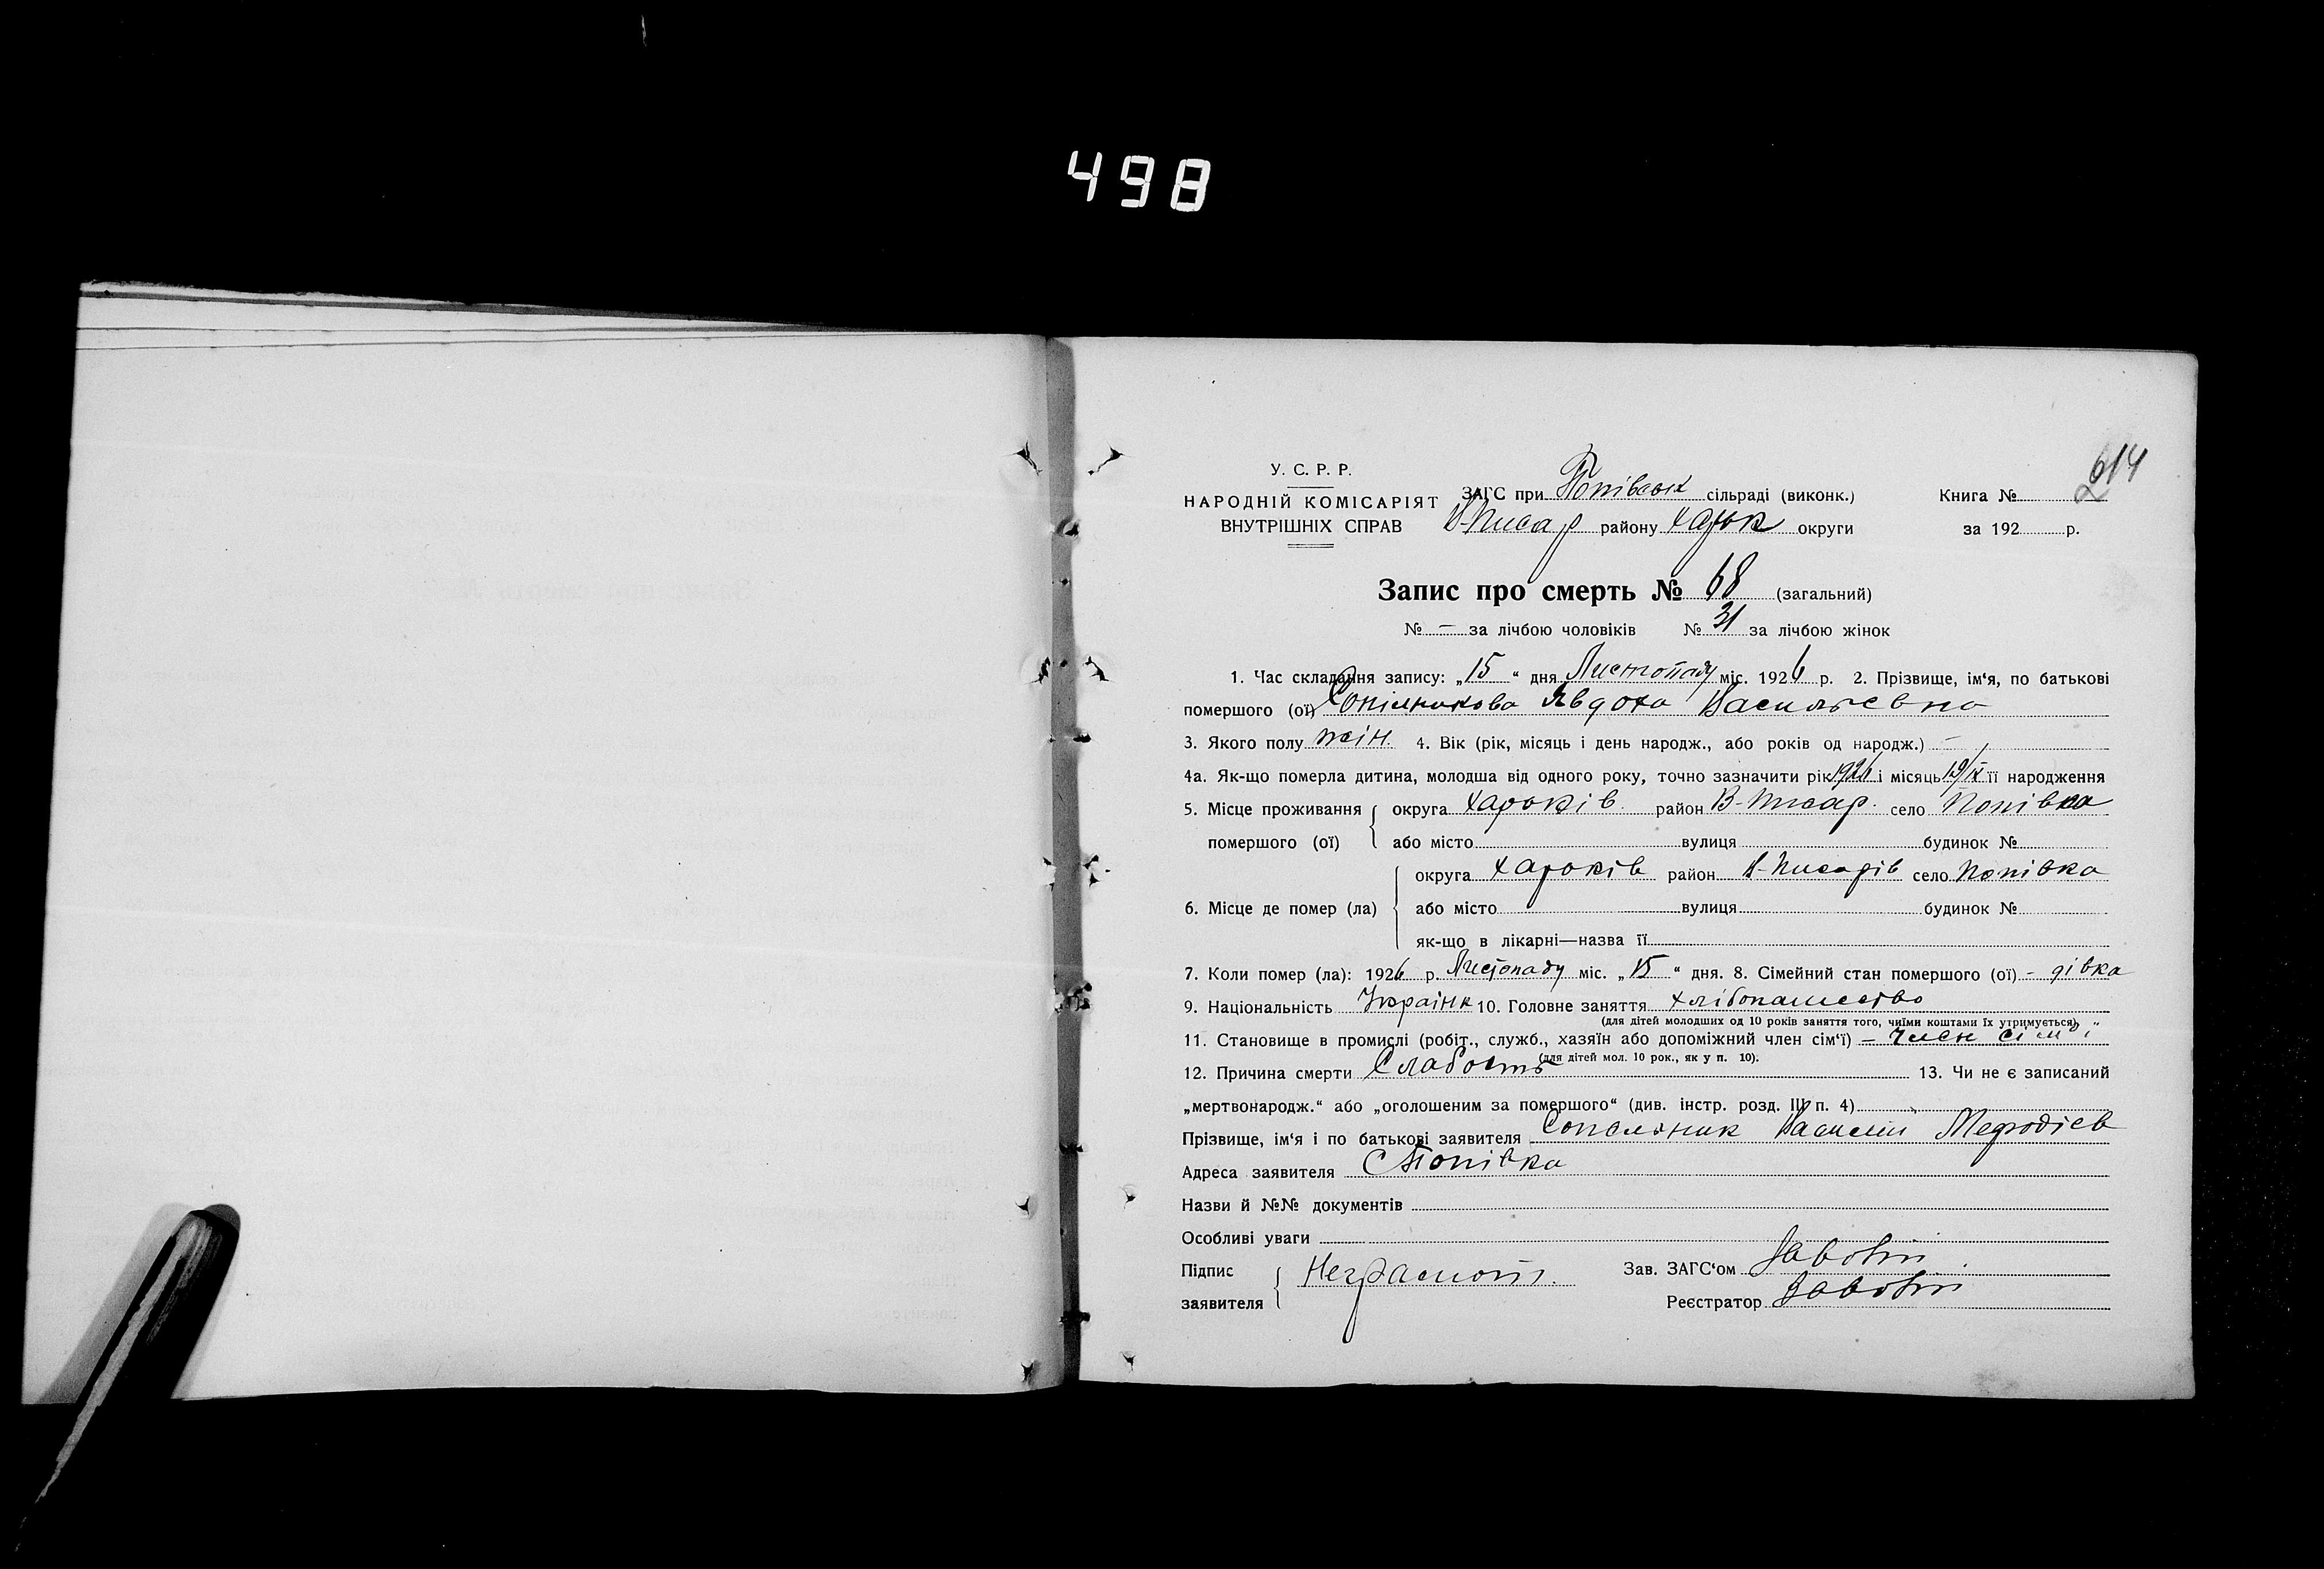 498
614
У. С. Р. Р.
НАРОДНІЙ КОМІСАРІЯТ
ВНУТРІШНІХ СПРАВ
ЗАГС при Попівськ сільраді (виконк.)
В-Писар району Харьк округи
Книга №
за 192 р.
Запис про смерть № 68 (загальний)
№ — за лічбою чоловіків № 31 за лічбою жінок
1. Час складання запису: „15“ дня Листопаду міс. 1926 р. 2. Прізвище, ім‘я, по батькові
помершого (ої) Явдоха Васильевна
3. Якого полу жін. 4. Вік (рік, місяць і день народж., або років од народж.) —
4а. Як-що померла дитина, молодша від одного року, точно зазначити рік 1926 і місяць 19/IX її народження
5. Місце проживання округа Харьків район В-Писар. село Попівка
помершого (ої) або місто вулиця будинок №
округа Харьків район В-Писарів село Попівка
6. Місце де помер (ла) або місто вулиця будинок №
як-що в лікарні—назва її
7. Коли помер (ла): 1926 р. Листопаду міс. „15“ дня. 8. Сімейний стан помершого (ої) – дівка
9. Національність Україінк 10. Головне заняття хлібопашество
(для дітей молодших од 10 років заняття того, чиїми коштами їх утримується)
11. Становище в промислі (робіт., служб., хазяїн або допоміжний член сім‘ї) – член сім"і
(для дітей мол. 10 рок., як у п. 10).
12. Причина смерти Слабость 13. Чи не є записаний
„мертвонародж.“ або „оголошеним за помершого“ (див. інстр. розд. III п. 4)
Прізвище, ім‘я і по батькові заявителя Мефодіев
Адреса заявителя с Попівка
Назви й №№ документів
Особливі уваги
Підпис
заявителя
Неграмот.
Зав. ЗАГС‘ом
Реєстратор